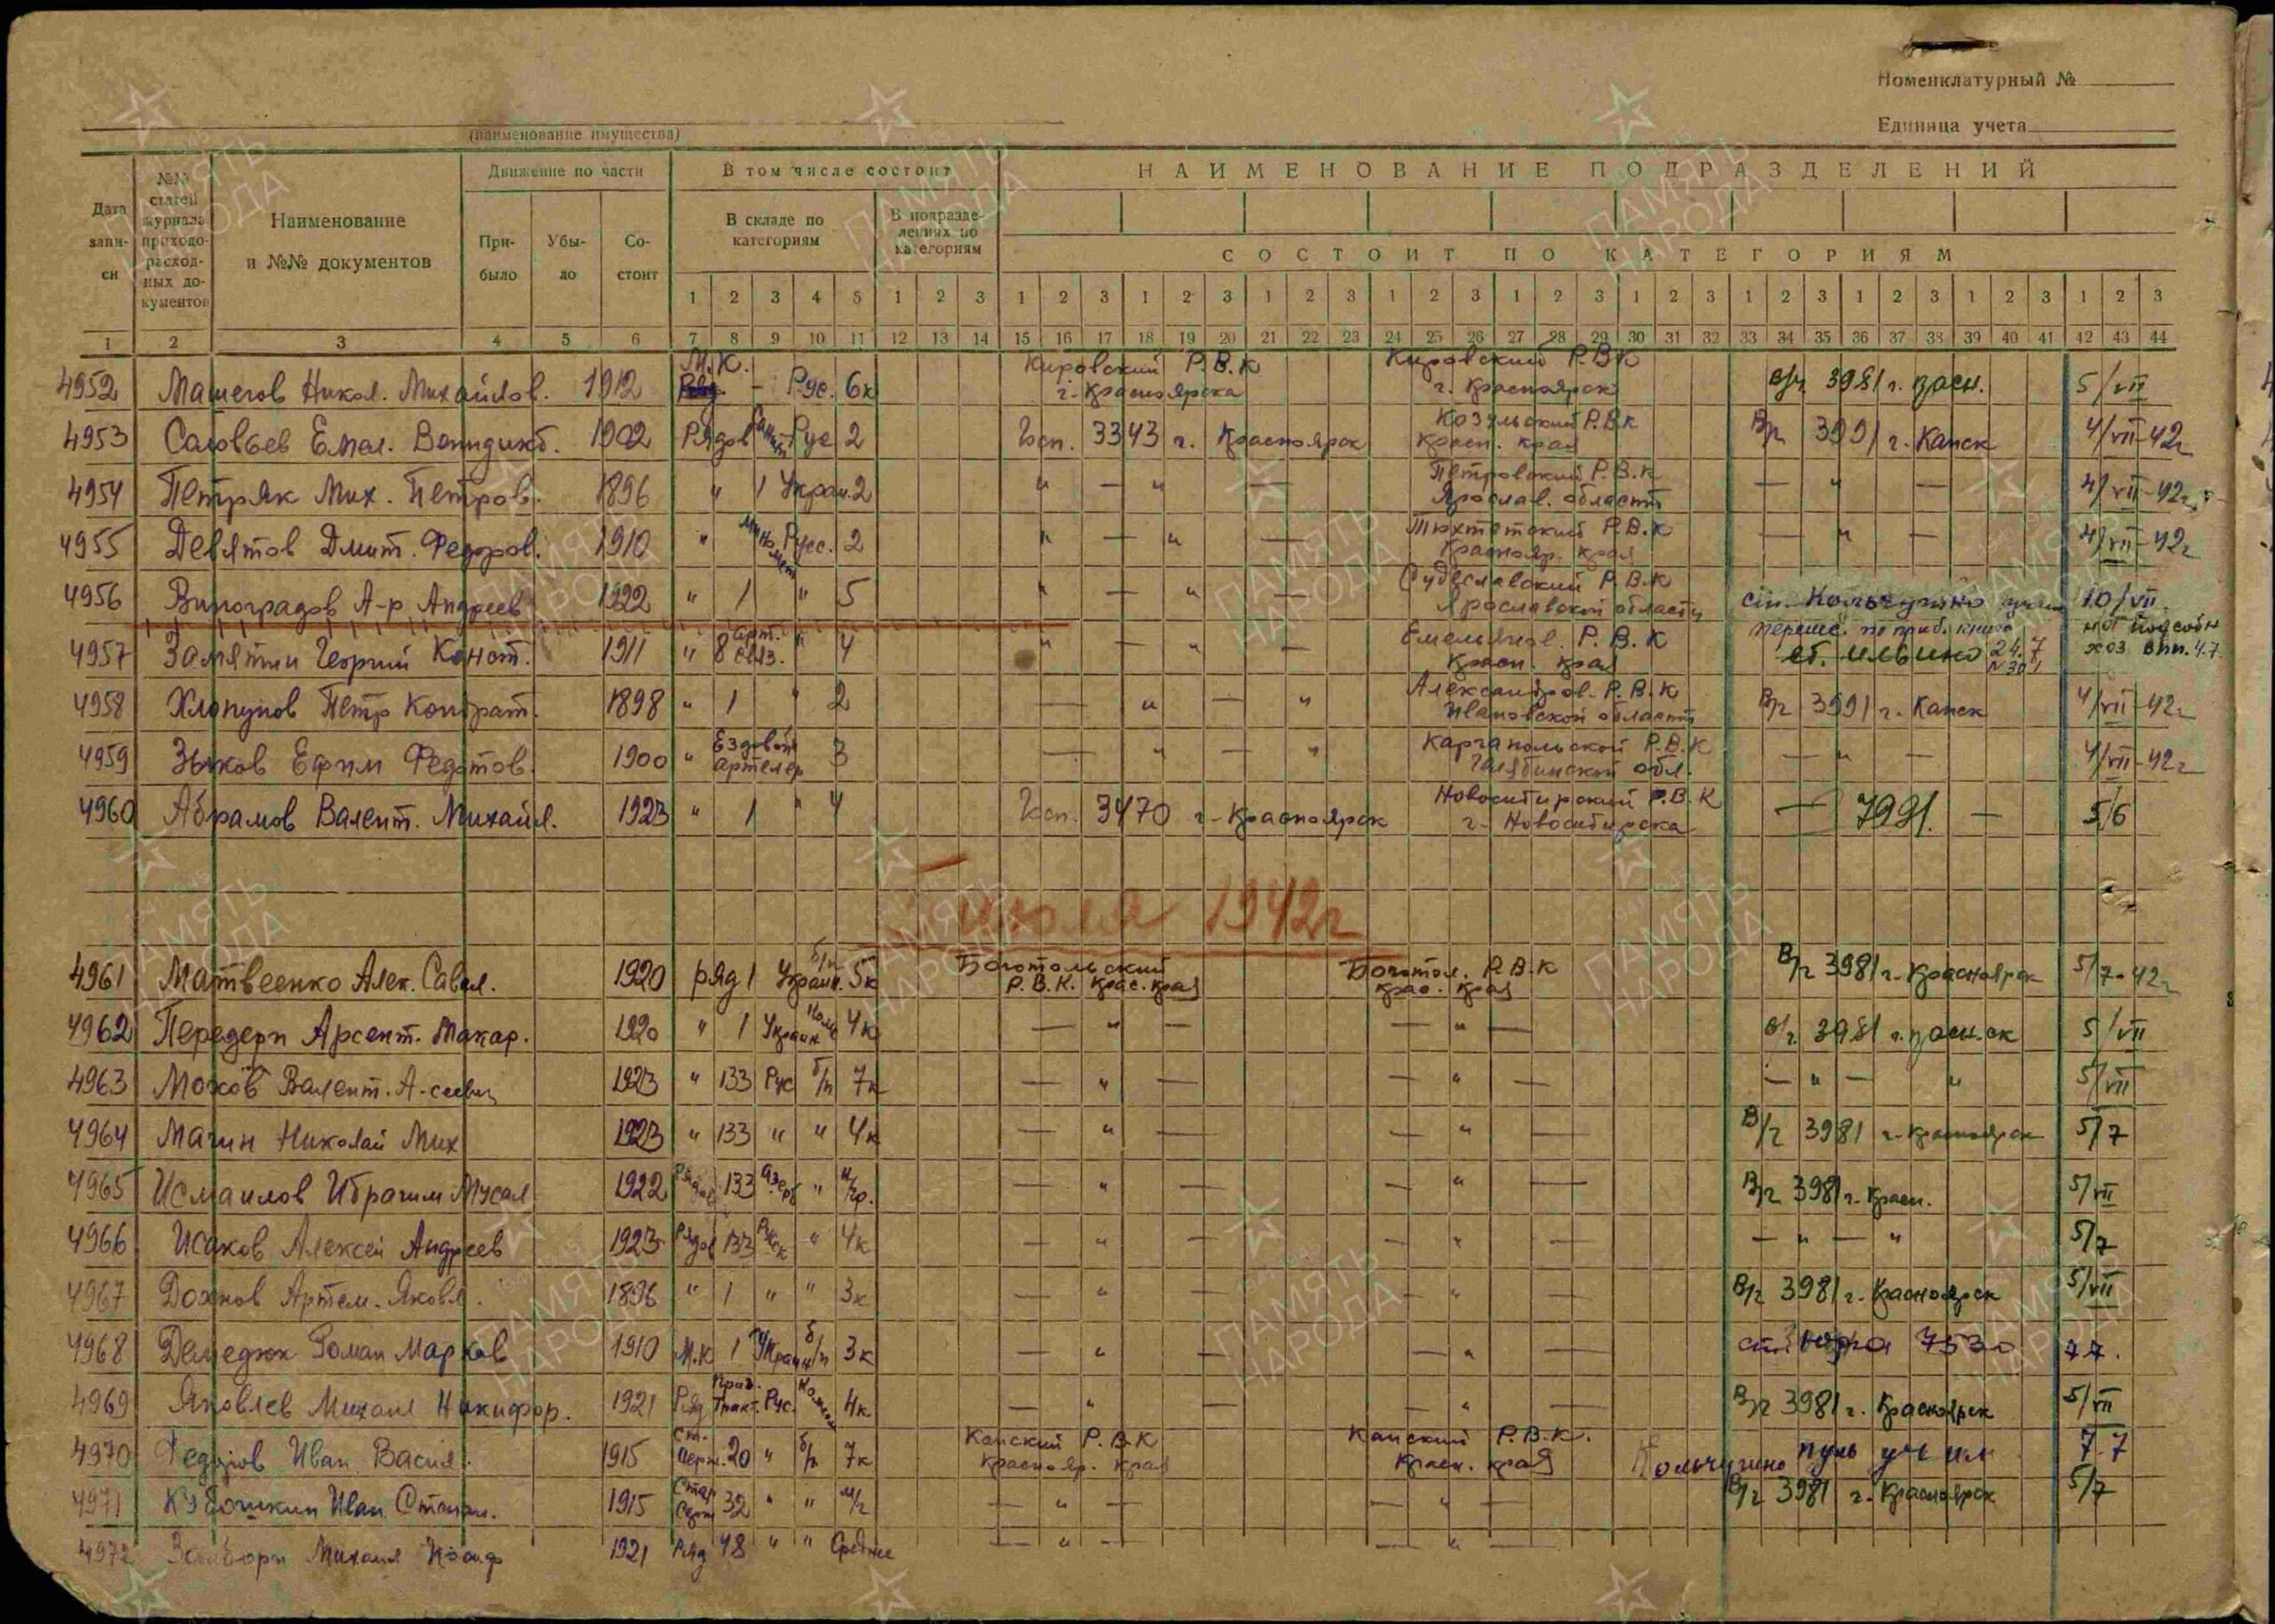 Номенклатурный №
Единица учета
(наименование имущества)
Дата записи
№№ статей журнала приходо-расходных документов
Наименование и №№ документов
Движение по части
Прибыло
Убыло
Состоит
В том числе состоит
В складе по категориям
В подразделениях по категориям
НАИМЕНОВАНИЕ ПОДРАЗДЕЛЕНИЙ
СОСТОИТ ПО КАТЕГОРИЯМ
1 2 3 4 5 1 2 3 1 2 3 1 2 3 1 2 3 1 2 3 1 2 3 1 2 3 1 2 3 1 2 3 1 2 3 1 2 3
1 2 3 4 5 6 7 8 9 10 11 12 13 14 15 16 17 18 19 20 21 22 23 24 25 26 27 28 29 30 31 32 33 34 35 36 37 38 39 40 41 42 43 44
4952 Никол. Михайлов. 1912 М.К. – Рус. 6к Кировский Р.В.К г. Красноярска Кировский Р.В.К г. Красноярск В/ч 3981 г. Красн. 5/VII
4953 Соловьев Емел. 1902 Рядов Рус 2 Госп. 3343 г. Красноярск Козульский Р.В.К Красн. края В/ч 3991 г. Канск 4/VII-42г
4954 Петряк Мих. Петров. 1896 " 1 Украи. 2 " — " — Петровский Р.В.К Ярослав. области — " — 4/VII-42г
4955 Девятов Дмит. Федоров. 1910 " миномет Русс. 2 " — " — Тюхтетский Р.В.К Краснояр. края — " — 4/VII-42г
4956 Виноградов А-р Андреев 1922 " 1 " 5 " — " — Судиславский Р.В.К Ярославской области ст. Кольчугино 10/VII.
4957 Замятин Георгий Конст. 1911 " 8 арт. связ. " 4 " — " — Емельянов. Р.В.К Красн. края ст. Ильино 24.7
4958 Хлопунов Петр Кондрат. 1898 " 1 " 2 — " — " Александров. Р.В.К Ивановской области В/ч 3991 г. Канск 4/VII-42г
4959 Зыков Ефим Федотов. 1900 " Ездовой 3 — " — " Каргапольской Р.В.К Челябинской обл. — " — 4/VII-42г
4960 Абрамов Валент. Михайл. 1923 " 1 " 4 Госп. 3470 г. Красноярск Новосибирский Р.В.К г. Новосибирска — 7991. — 5/6
июля 1942г
4961 Матвеенко Алек. Савел. 1920 ряд 1 Украин. б/п 5к Боготольский Р.В.К. Крас. края Боготол. Р.В.К крас. края В/ч 3981 г. Красноярск 5/7-42г
4962 Передери Арсент. Макар. 1920 " 1 Украин 4к — " — — " — В/ч. 3981 г. 5/VII
4963 Мохов Валент. А-сеевич 1923 " 133 Рус б/п 7к — " — — " — — " — " 5/VII
4964 Магин Николай Мих 1923 " 133 " " 4к — " — — " — В/ч 3981 г. Красноярск 5/7
4965 Исмаилов Ибрагим Мусал 1922 133 азерб " н/гр. — " — — " — В/ч 3981 г. Красн. 5/VII
4966 Исаков Алексей Андреев 1923 Рядов 133 " 4к — " — — " — — " — " 5/7
4967 Артем. Яковл. 1896 " 1 " " 3к — " — — " — В/ч 3981 г. Красноярск 5/VII
4968 Демедюк Роман Марков 1910 М.К 1 Украин б/п 3к — " — — " — ст. Юрга 7530 7.7.
4969 Яковлев Михаил Никифор. 1921 Ряд Тракт. Рус. 4к — " — — " — В/ч 3981 г. Красноярск 5/VII
4970 Федоров Иван Васил. 1915 ст. 20 " б/п 7к Канский Р.В.К Краснояр. края Канский Р.В.К. Красн. края Кольчугино 7.7
4971 Иван Степан. 1915 Стар Серж 32 " " — " — — " — В/ч 3981 г. Красноярск 5/7
4972 Михаил 1921 Ряд 48 " " Среднее — " — — " —
ПАМЯТЬ НАРОДА